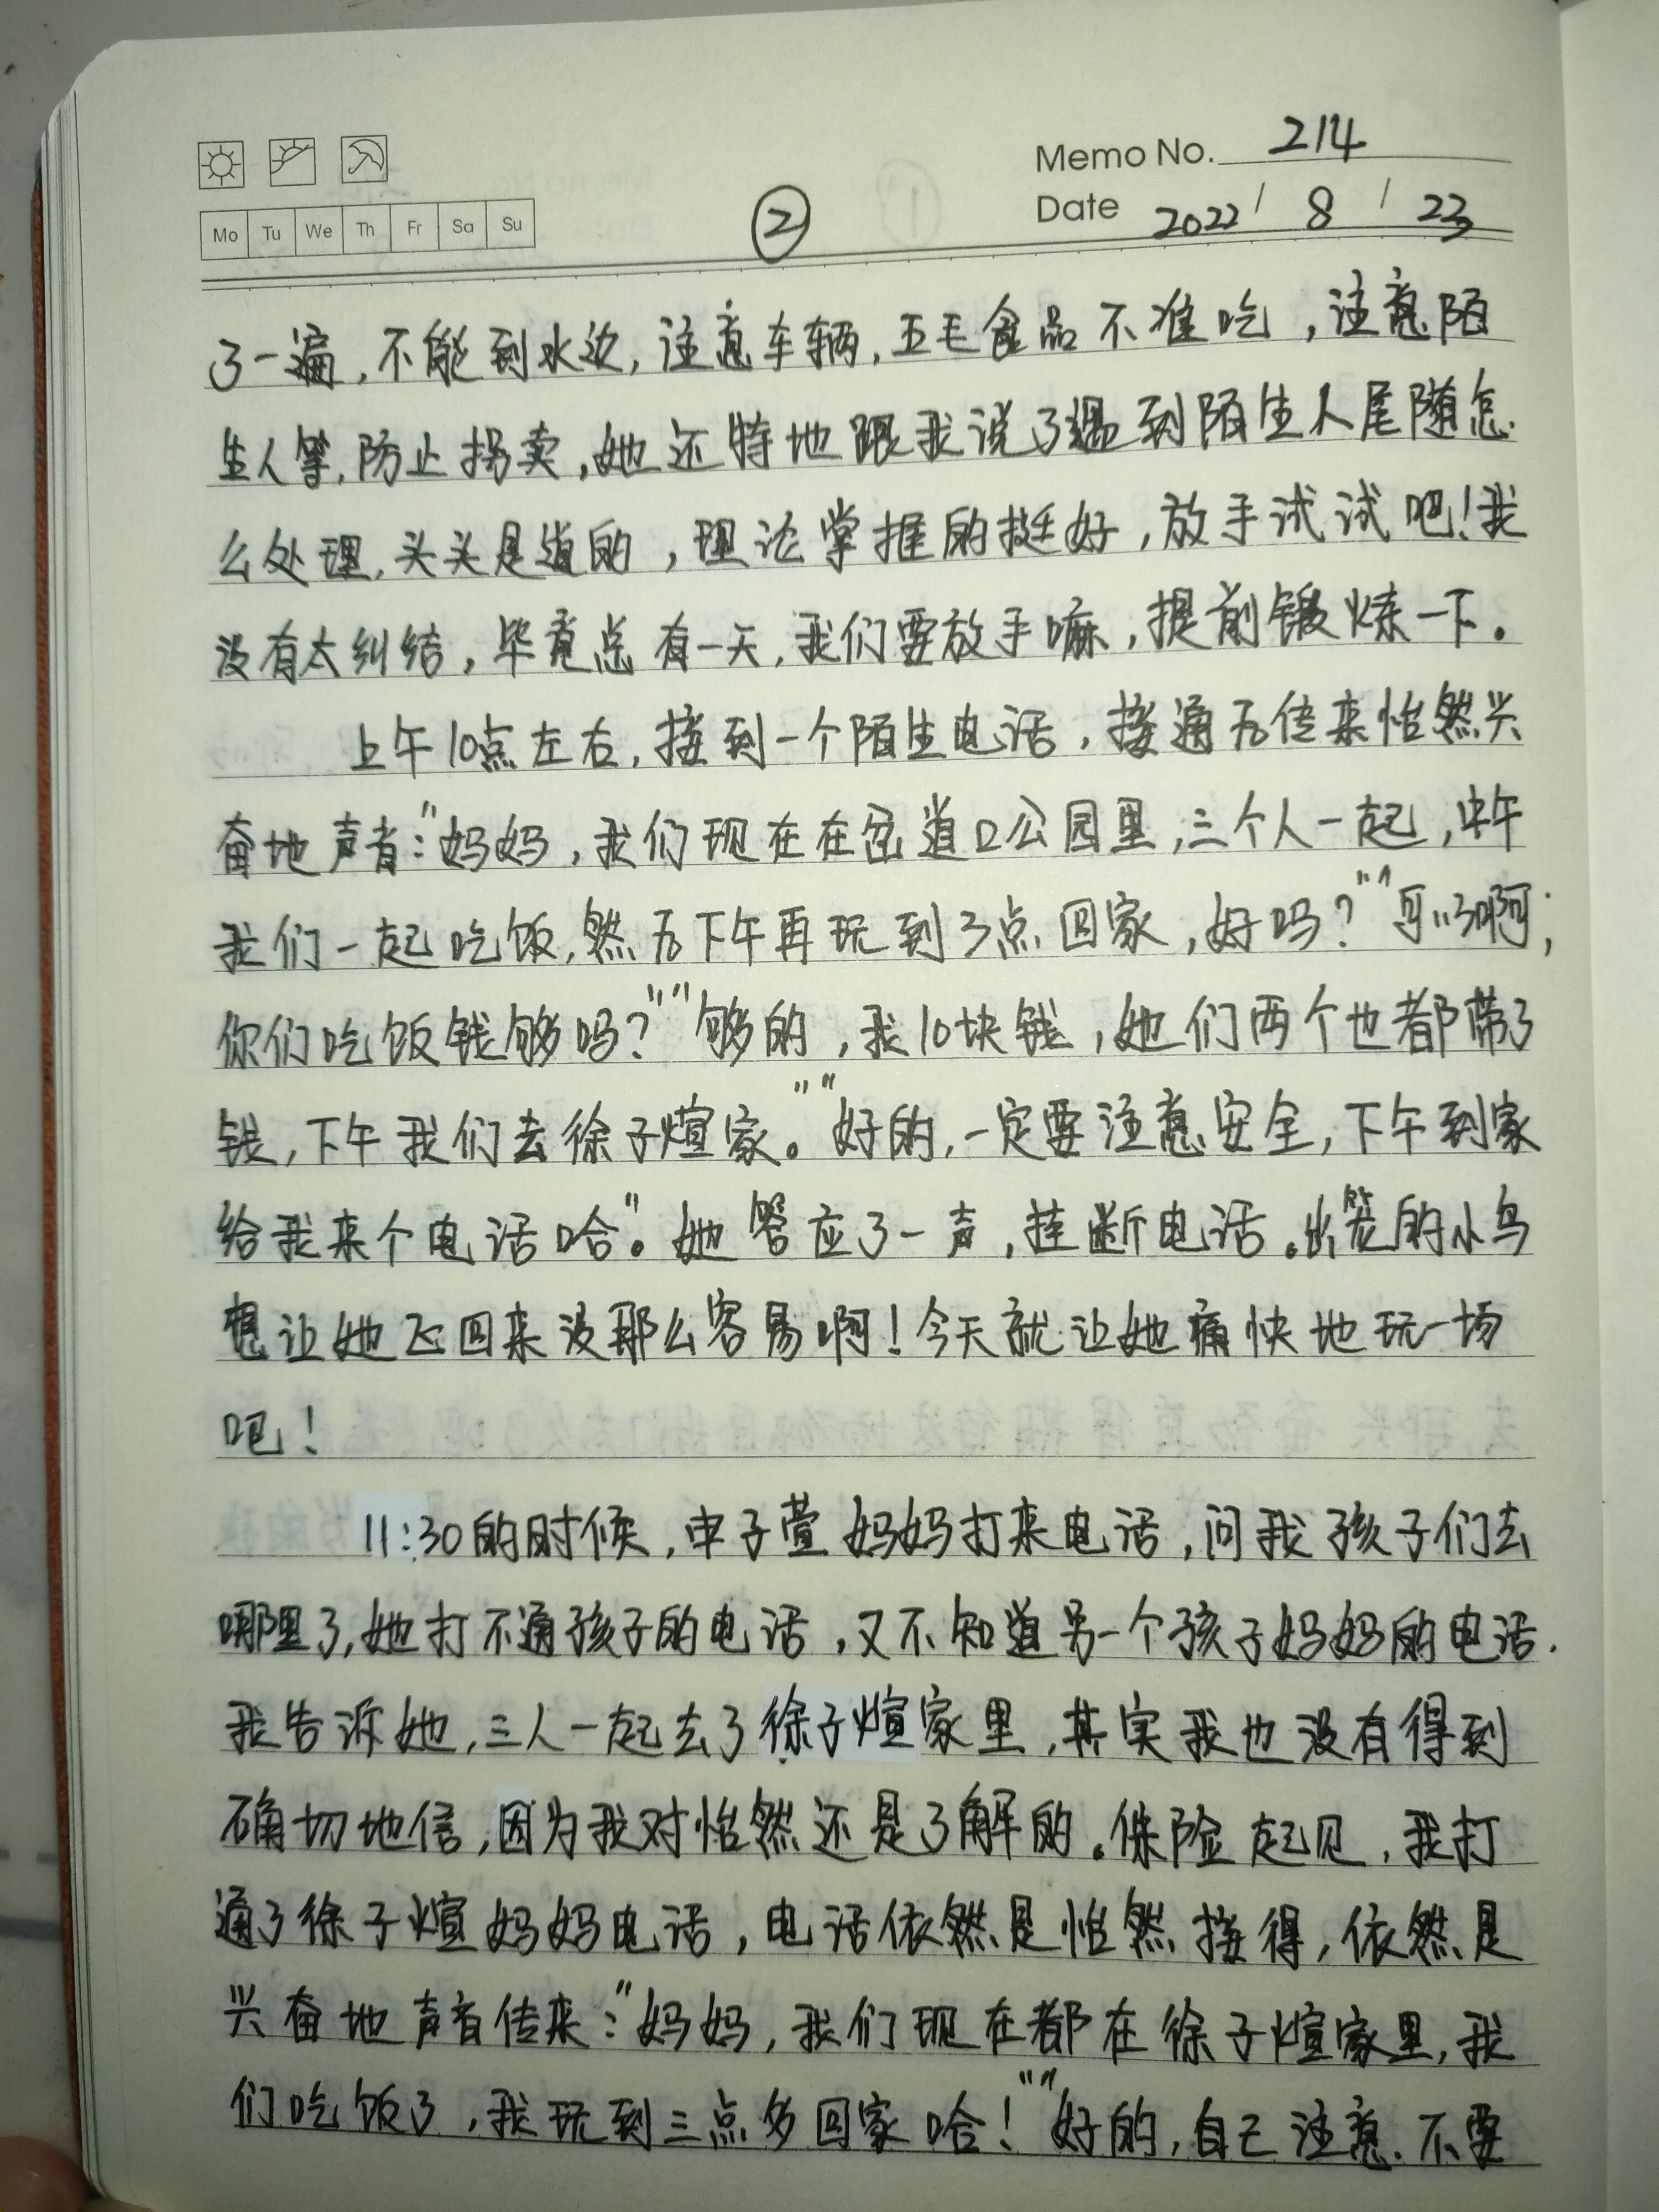 Memo No. 214
Mo Tu We Th Fr Sa Su
②
Date 2022 / 8 / 23
了一遍,不能到水边,注意车辆,五毛食品不准吃,注意陌
生人等,防止拐卖,她还特地跟我说了遇到陌生人尾随怎
么处理,头头是道的,理论掌握的挺好,放手试试吧!我
没有太纠结,毕竟总有一天,我们要放手嘛,提前锻炼一下。
上午10点左右,接到一个陌生电话,接通后传来怡然兴
奋地声音:"妈妈,我们现在在岔道口公园里,三个人一起,中午
我们一起吃饭,然后下午再玩到3点回家,好吗?""可以啊,
你们吃饭钱够吗?""够的,我10块钱,她们两个也都带了
钱,下午我们去徐子煊家。""好的,一定要注意安全,下午到家
给我来个电话哈"。她答应了一声,挂断电话。出笼的小鸟
想让她飞回来没那么容易啊!今天就让她痛快地玩一场
吧!
11:30的时候,申子萱妈妈打来电话,问我孩子们去
哪里了,她打不通孩子的电话,又不知道另一个孩子妈妈的电话.
我告诉她,三人一起去了徐子煊家里,其实我也没有得到
确切地信,因为我对怡然还是了解的。保险起见,我打
通了徐子煊妈妈电话,电话依然是怡然接得,依然是
兴奋地声音传来:"妈妈,我们现在都在徐子煊家里,我
们吃饭了,我玩到三点多回家哈!""好的,自己注意.不要